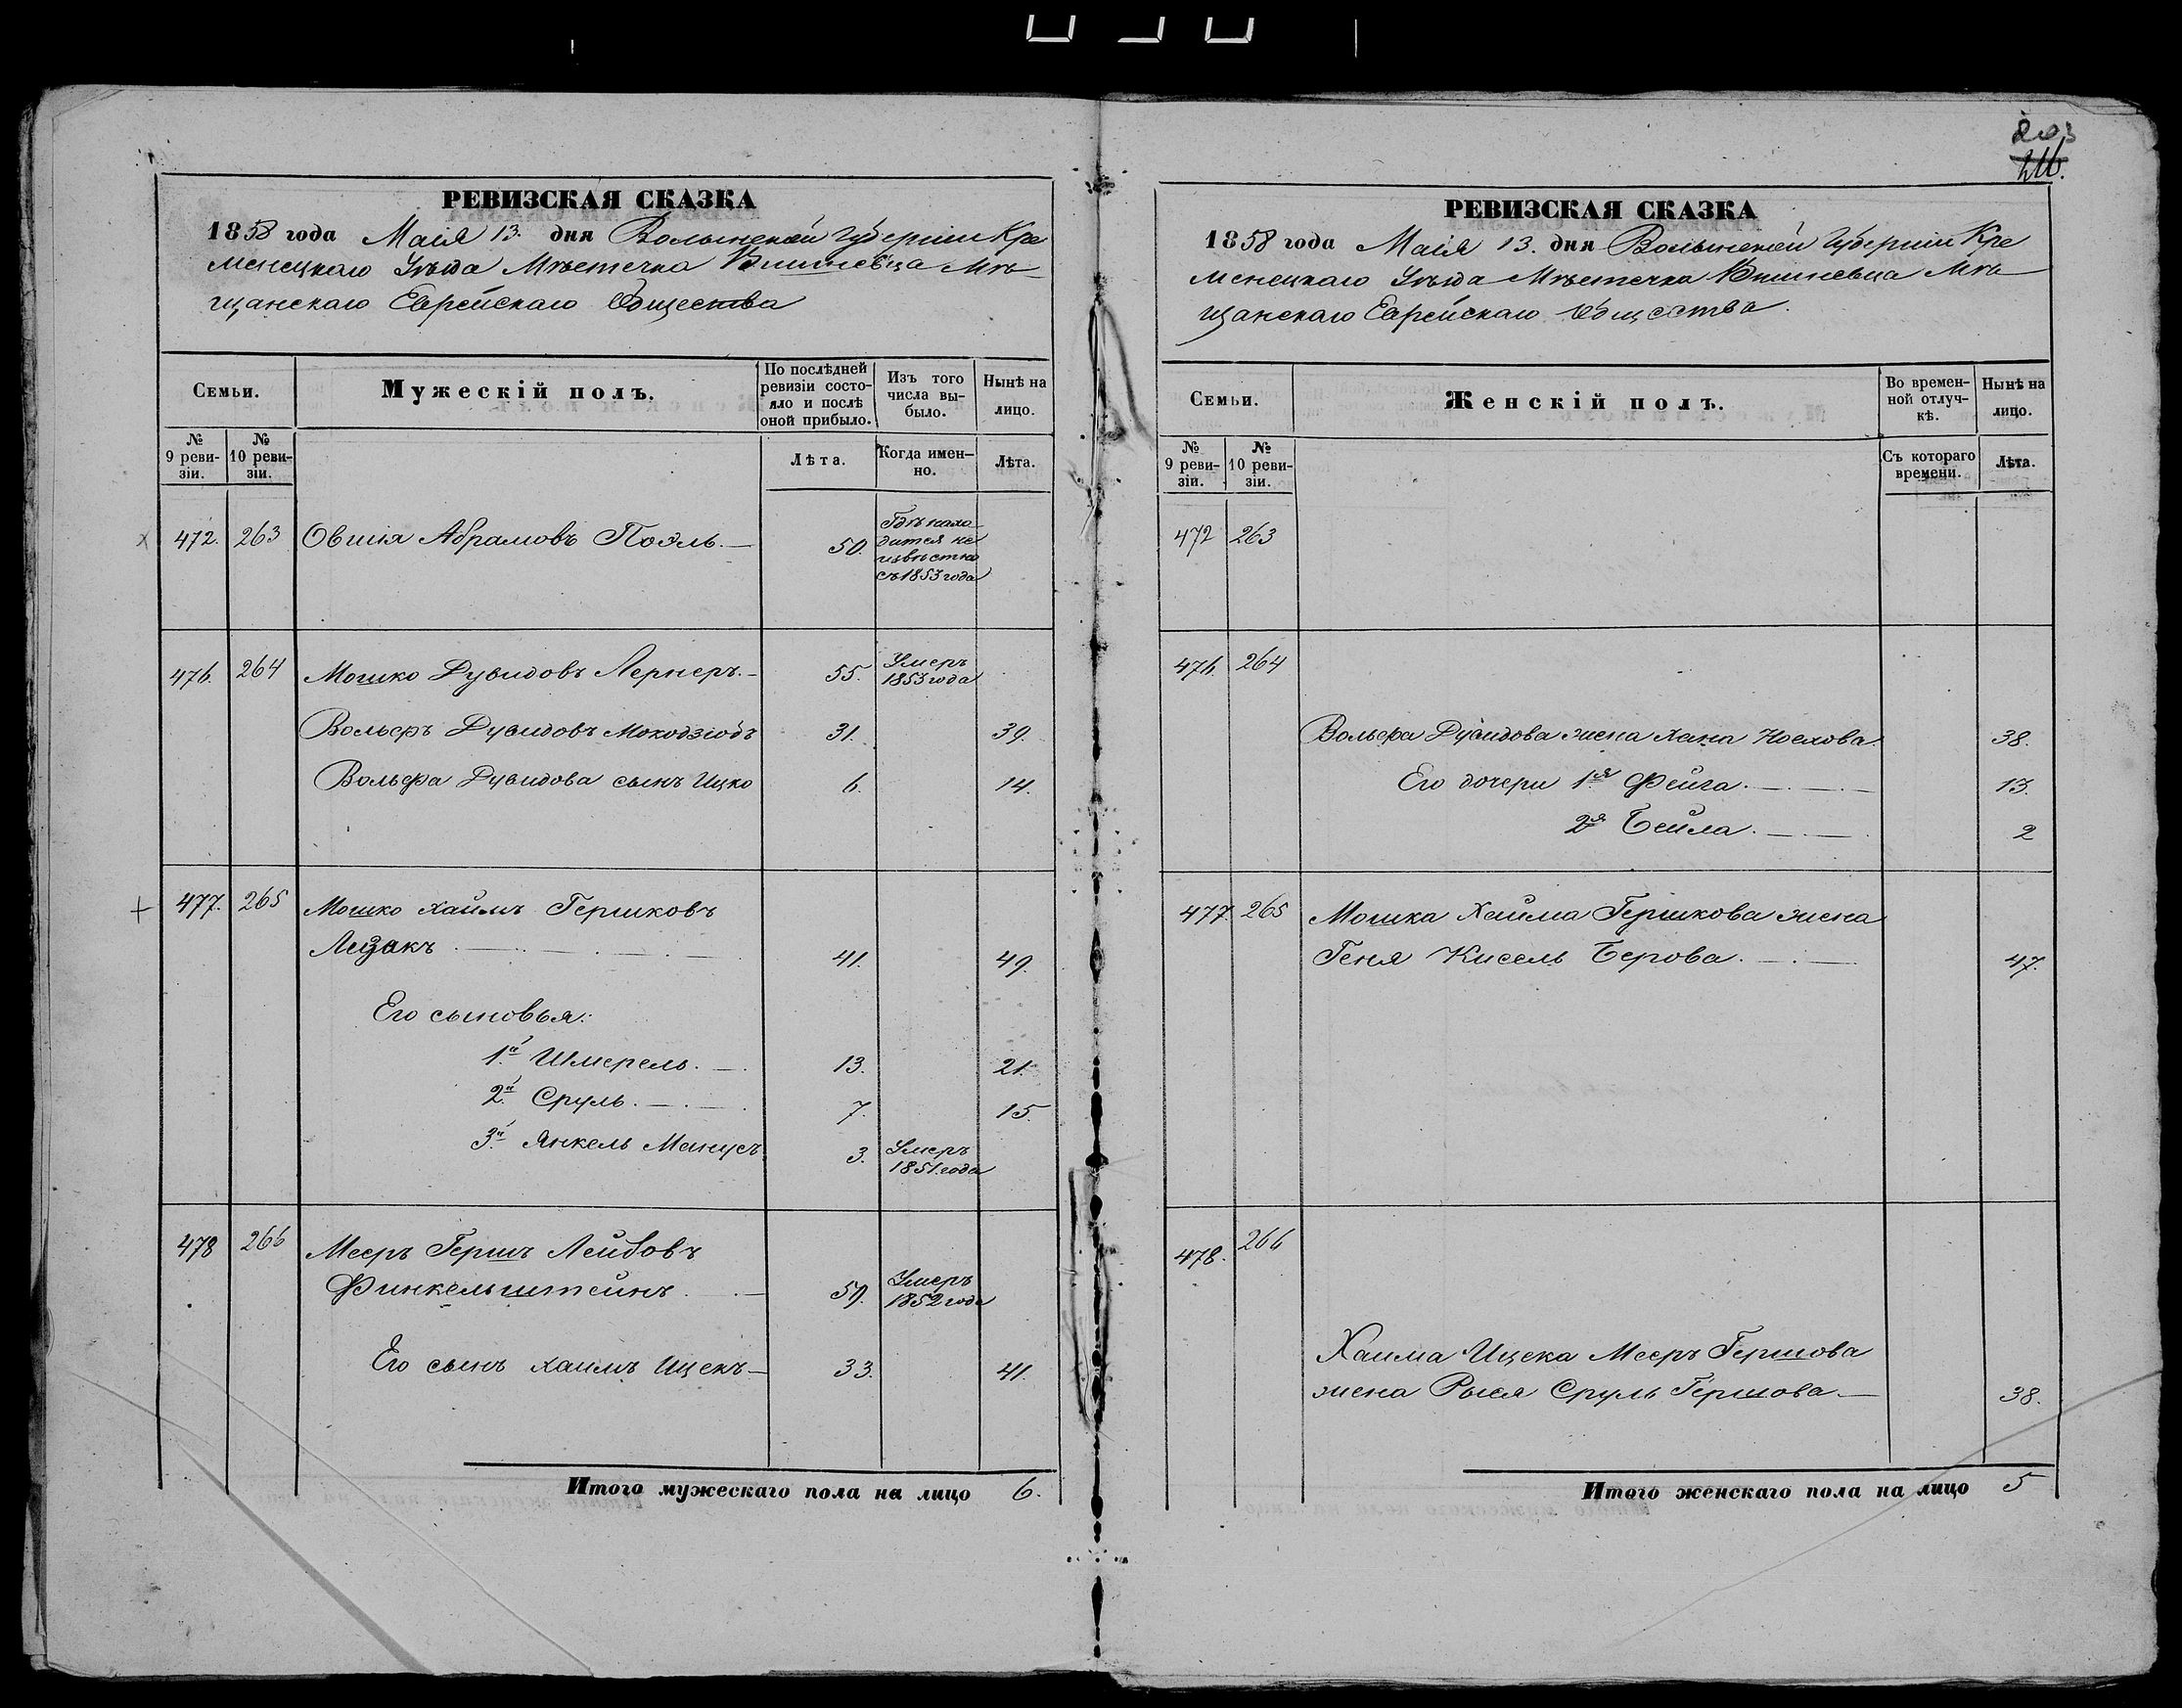 РЕВИЗСКАЯ СКАЗКА
1858 года Маія 13. дня Волынской Губерніи Кре
менецкаго Уѣзда Мѣстечка Вишневца Мѣ
щанскаго Еврейскаго Общества
Семьи.
Мужескій полъ.
По послѣдней ревизіи состо-
яло и послѣ оной прибыло.
Изъ того числа вы-
было.
Нынѣ на лицо.
№ 9 реви-
зіи.
№ 10 реви-
зіи.
Лѣта.
Когда имен-
но.
Лѣта.
472. 263 Овшія Абрамовъ Поэль. 50.
Гдѣ нахо
дится не
извѣстно
съ 1853 года
476. 264 Мошко Дувидовъ Лернеръ. 55. Умеръ
1853 года
Вольфъ Дувидовъ 31. 39.
Вольфа Дувидова сынъ Ицко 6. 14.
477. 265 Мошко Хаимъ Гершковъ
Лизакъ 41. 49.
Его сыновья:
1й Шмерель. 13. 21.
2й Сруль. 7. 15.
3й Янкель Манусъ. 3. Умеръ
1851 года
478 266 Мееръ Гершъ Лейбовъ
Финкельштейнъ 59. Умеръ
1852 года
Его сынъ Хаимъ Ицекъ 33. 41.
Итого мужескаго пола на лицо 6.
203
216.
РЕВИЗСКАЯ СКАЗКА
1858 года Маія 13. дня Волынской Губерніи Кре
менецкаго Уѣзда Мѣстечка Вишневца Мѣ
щанскаго Еврейскаго Общества.
Семьи.
Женскій полъ.
Во времен-
ной отлуч-
кѣ.
Нынѣ на лицо.
№ 9 реви-
зіи.
№ 10 реви-
зіи.
Съ котораго времени.
Лѣта.
472 263
476. 264
Вольфа Дувидова жена Хана 38.
Его дочери 1я Фейга. 13.
2я Бейла. 2
477. 265 Мошка Хаима Гершкова жена
Геня Кисель Берова. 47.
478. 266
Хаима Ицека Мееръ Гершова
жена Рыся Сруль Гершова 38.
Итого женскаго пола на лицо 5